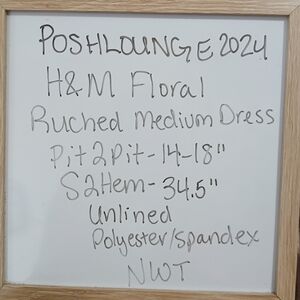 POSHLOUNGE2024
H&M Floral
Ruched Medium Dress
Pit2Pit-14-18"
S2Hem-34.5"
Unlined
Polyester/Spandex
NWT